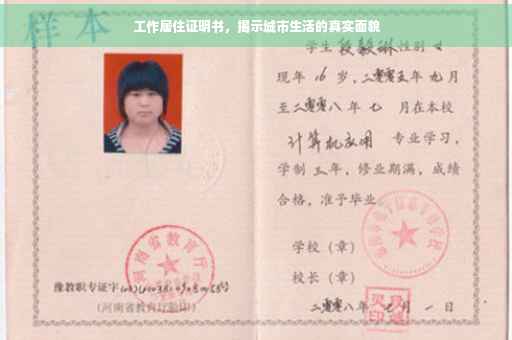 工作居住证明书，揭示城市生活的真实面貌
样本
学生段毅琳性别女
现年16岁，二零零五年九月
至二零零八年七月在本校
计算机应用 专业学习，
学制三年，修业期满，成绩
合格，准予毕业
学校（章）
校长（章）
二零零八年 月一日
河南省教育厅
豫教职专证字
（河南省教育厅验印）